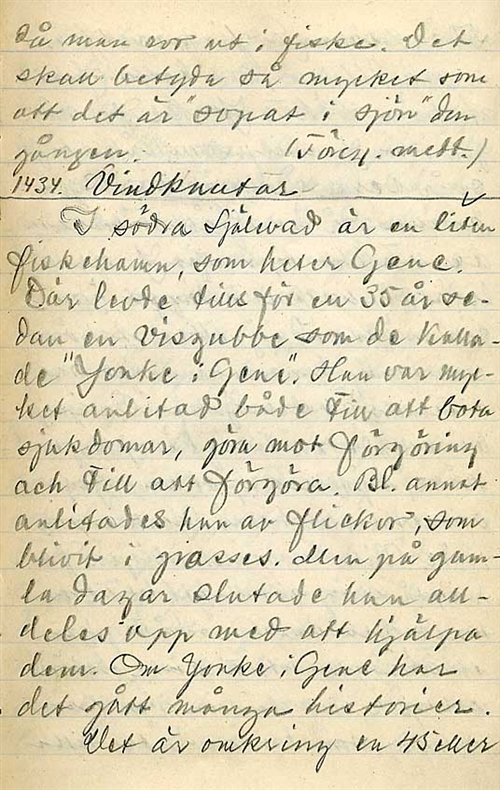 då man ror ut i fiske. Det
skall betyda så mycket som
att det är "sopat i sjön" den
gången. (Föreg. medd.)
1434. Vindknutar
I södra Själevad är en liten
fiskehamn, som heter Gene.
Där levde tills för en 35 år se-
dan en visgubbe som de kalla-
de "Jonke i Gene". Han var myc-
ket anlitad både till att bota
sjukdomar, göra mot förgöring
och till att förgöra. Bl. annat
anlitades han av flickor, som
blivit i grosses. Men på gam-
la dagar slutade han all-
deles opp med att hjälpa
dem. Om Jonke i Gene har
det gått många historier.
Det är omkring en 45 eller